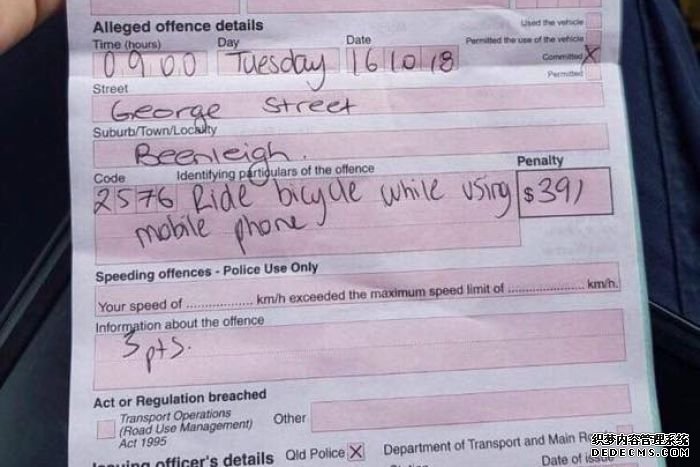 Alleged offence details
Used the vehicle
Time (hours) Day Date
Permitted the use of the vehicle
0900 Tuesday 16 10 18
Committed X
Permitted
Street
George Street
Suburb/Town/Locality
Beenleigh.
Code Identifying particulars of the offence Penalty
2576 Ride bicycle while using $391
mobile phone
Speeding offences - Police Use Only
Your speed of .................... km/h exceeded the maximum speed limit of ...................... km/h.
Information about the offence
3 pts.
Act or Regulation breached
Transport Operations
(Road Use Management)
Act 1995
Other
Issuing officer's details Qld Police X Department of Transport and Main
Date of issue
织梦内容管理系统
DEDECMS.COM